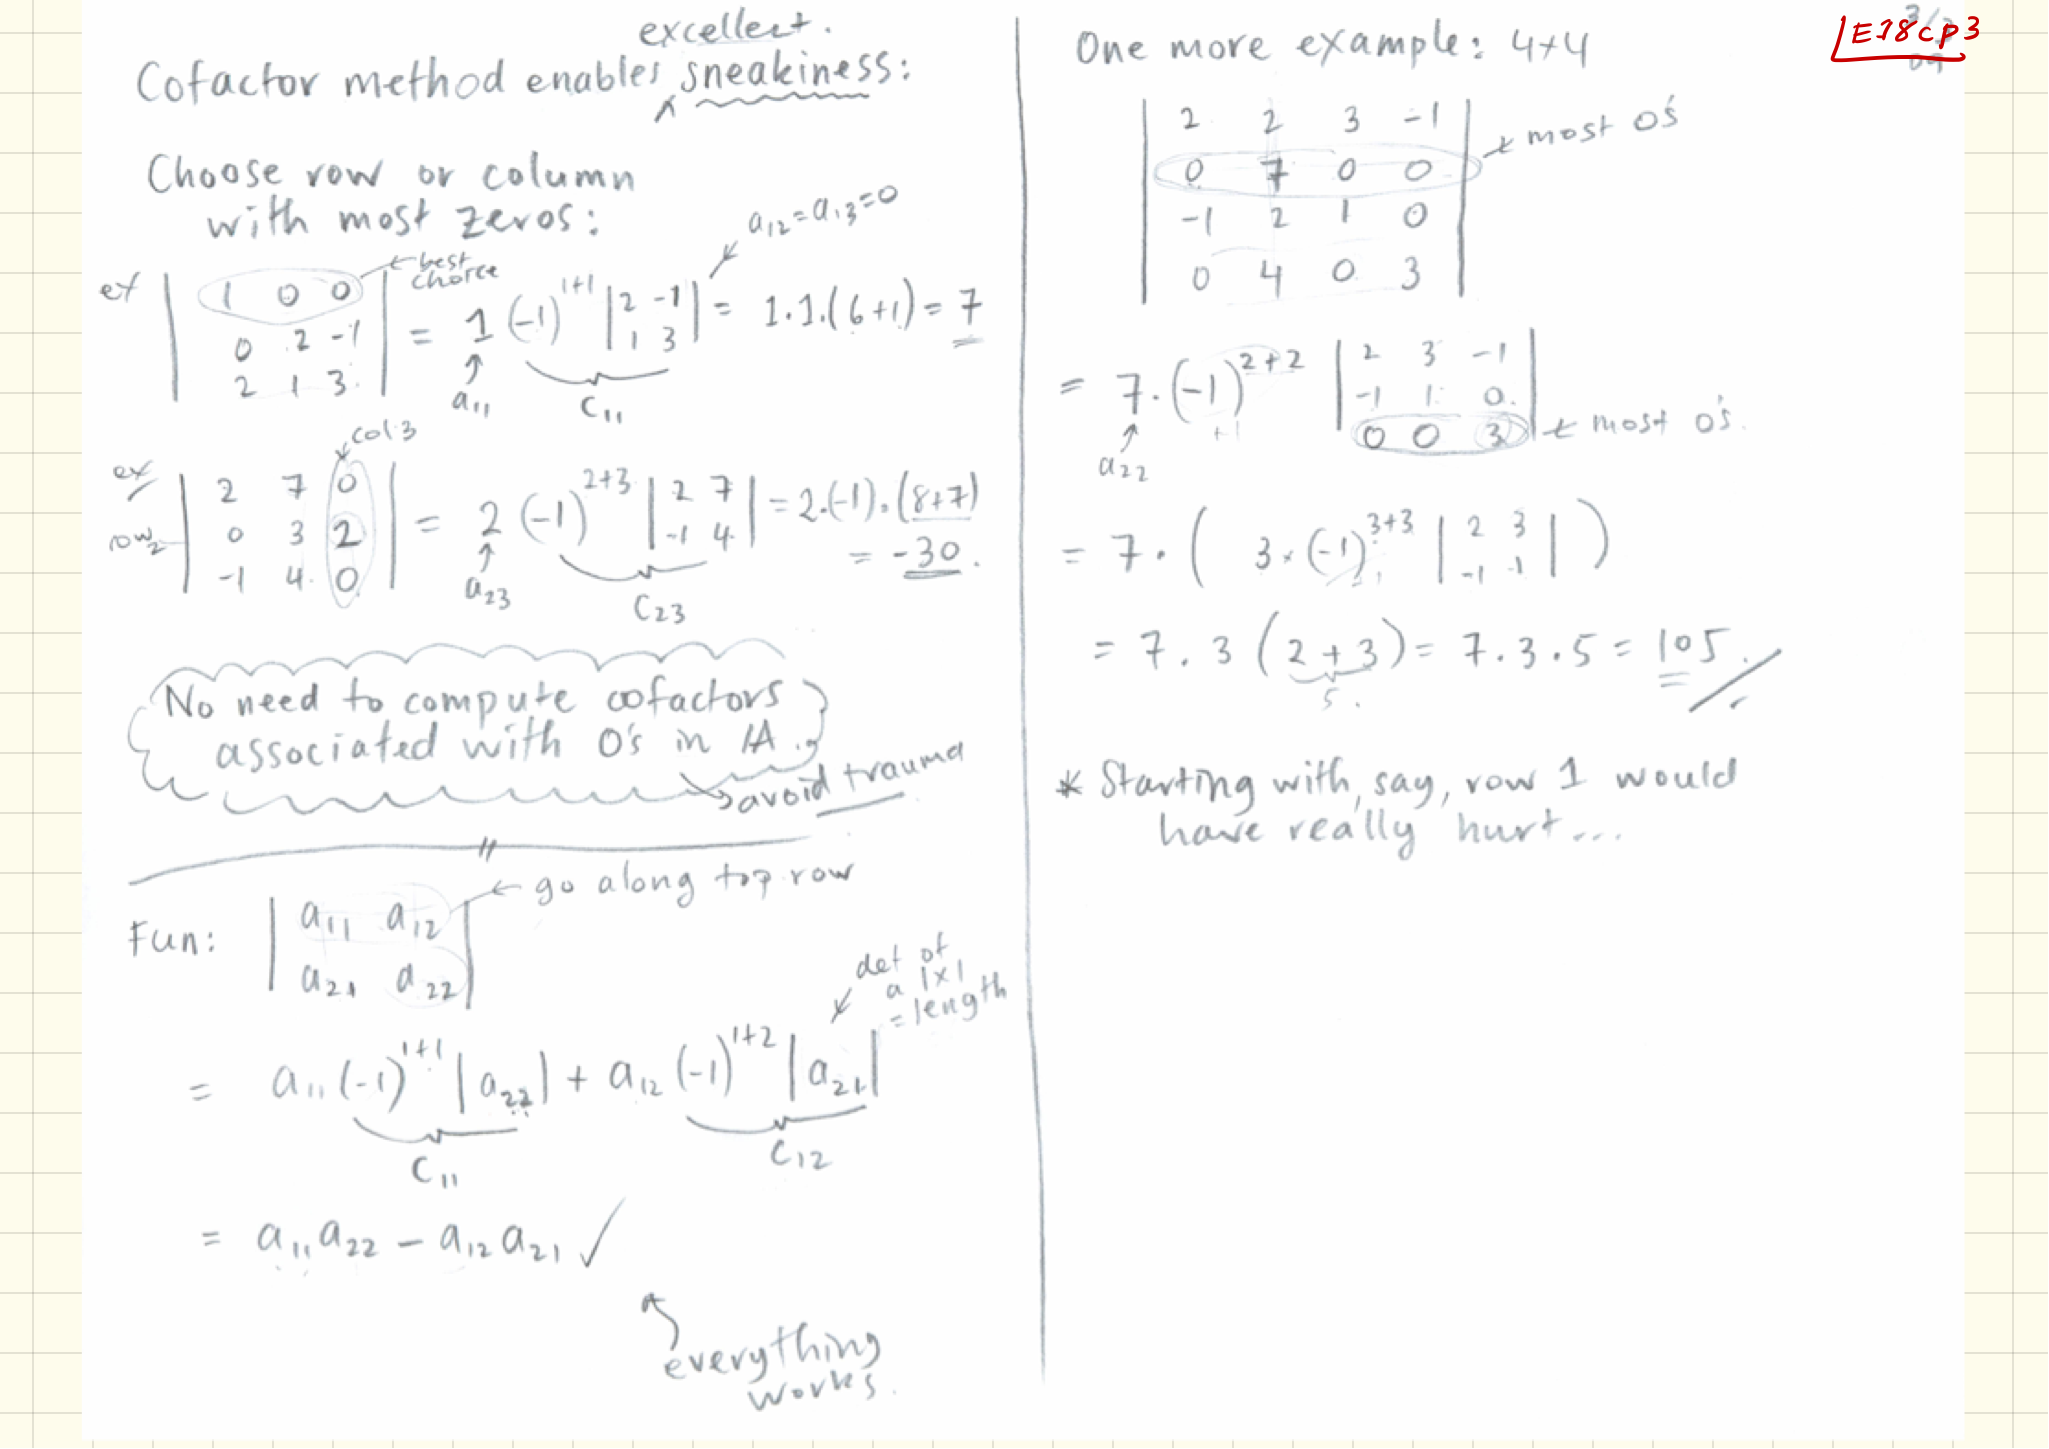 excellent.
Cofactor method enables ^ sneakiness:
Choose row or column
with most zeros:
a₁₂=a₁₃=0
← best choice
ex | 1 0 0 |
| 0 2 -1 |
| 2 1 3 |
= 1 (-1)¹⁺¹ | 2 -1 | = 1.1.(6+1) = 7
| 1 3 |
a₁₁ C₁₁
col 3
ex | 2 7 0 |
row 2 | 0 3 2 |
| -1 4 0 |
= 2 (-1)²⁺³ | 2 7 | = 2.(-1).(8+7)
| -1 4 | = -30.
a₂₃ C₂₃
No need to compute cofactors
associated with 0's in A.
→ avoid trauma
Fun: | a₁₁ a₁₂ | ← go along top row
| a₂₁ a₂₂ |
det of
a 1x1
= length
= a₁₁ (-1)¹⁺¹ |a₂₂| + a₁₂ (-1)¹⁺² |a₂₁|
C₁₁ C₁₂
= a₁₁a₂₂ - a₁₂a₂₁ ✓
everything
works.
E18cp3
One more example: 4x4
| 2 2 3 -1 |
| 0 7 0 0 | ← most 0's
| -1 2 1 0 |
| 0 4 0 3 |
= 7.(-1)²⁺² | 2 3 -1 |
+1 | -1 1 0 |
a₂₂ | 0 0 3 | ← most 0's.
= 7.( 3.(-1)³⁺³ | 2 3 | )
| -1 1 |
= 7.3 (2+3) = 7.3.5 = 105
5.
* Starting with, say, row 1 would
have really hurt...